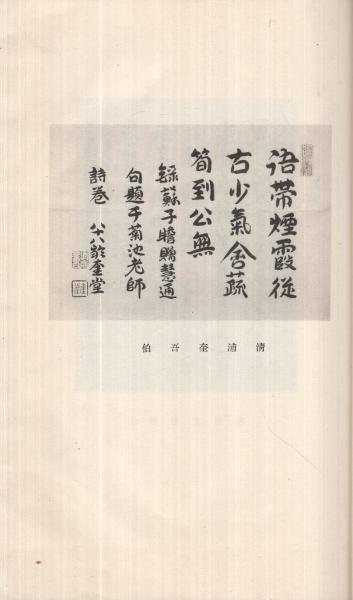 語帶煙霞從
古少氣含蔬
筍到公無
錄蘇子瞻贈慧通
句題于菊池老師
詩卷 八十八齡奎堂
伯吾奎浦清